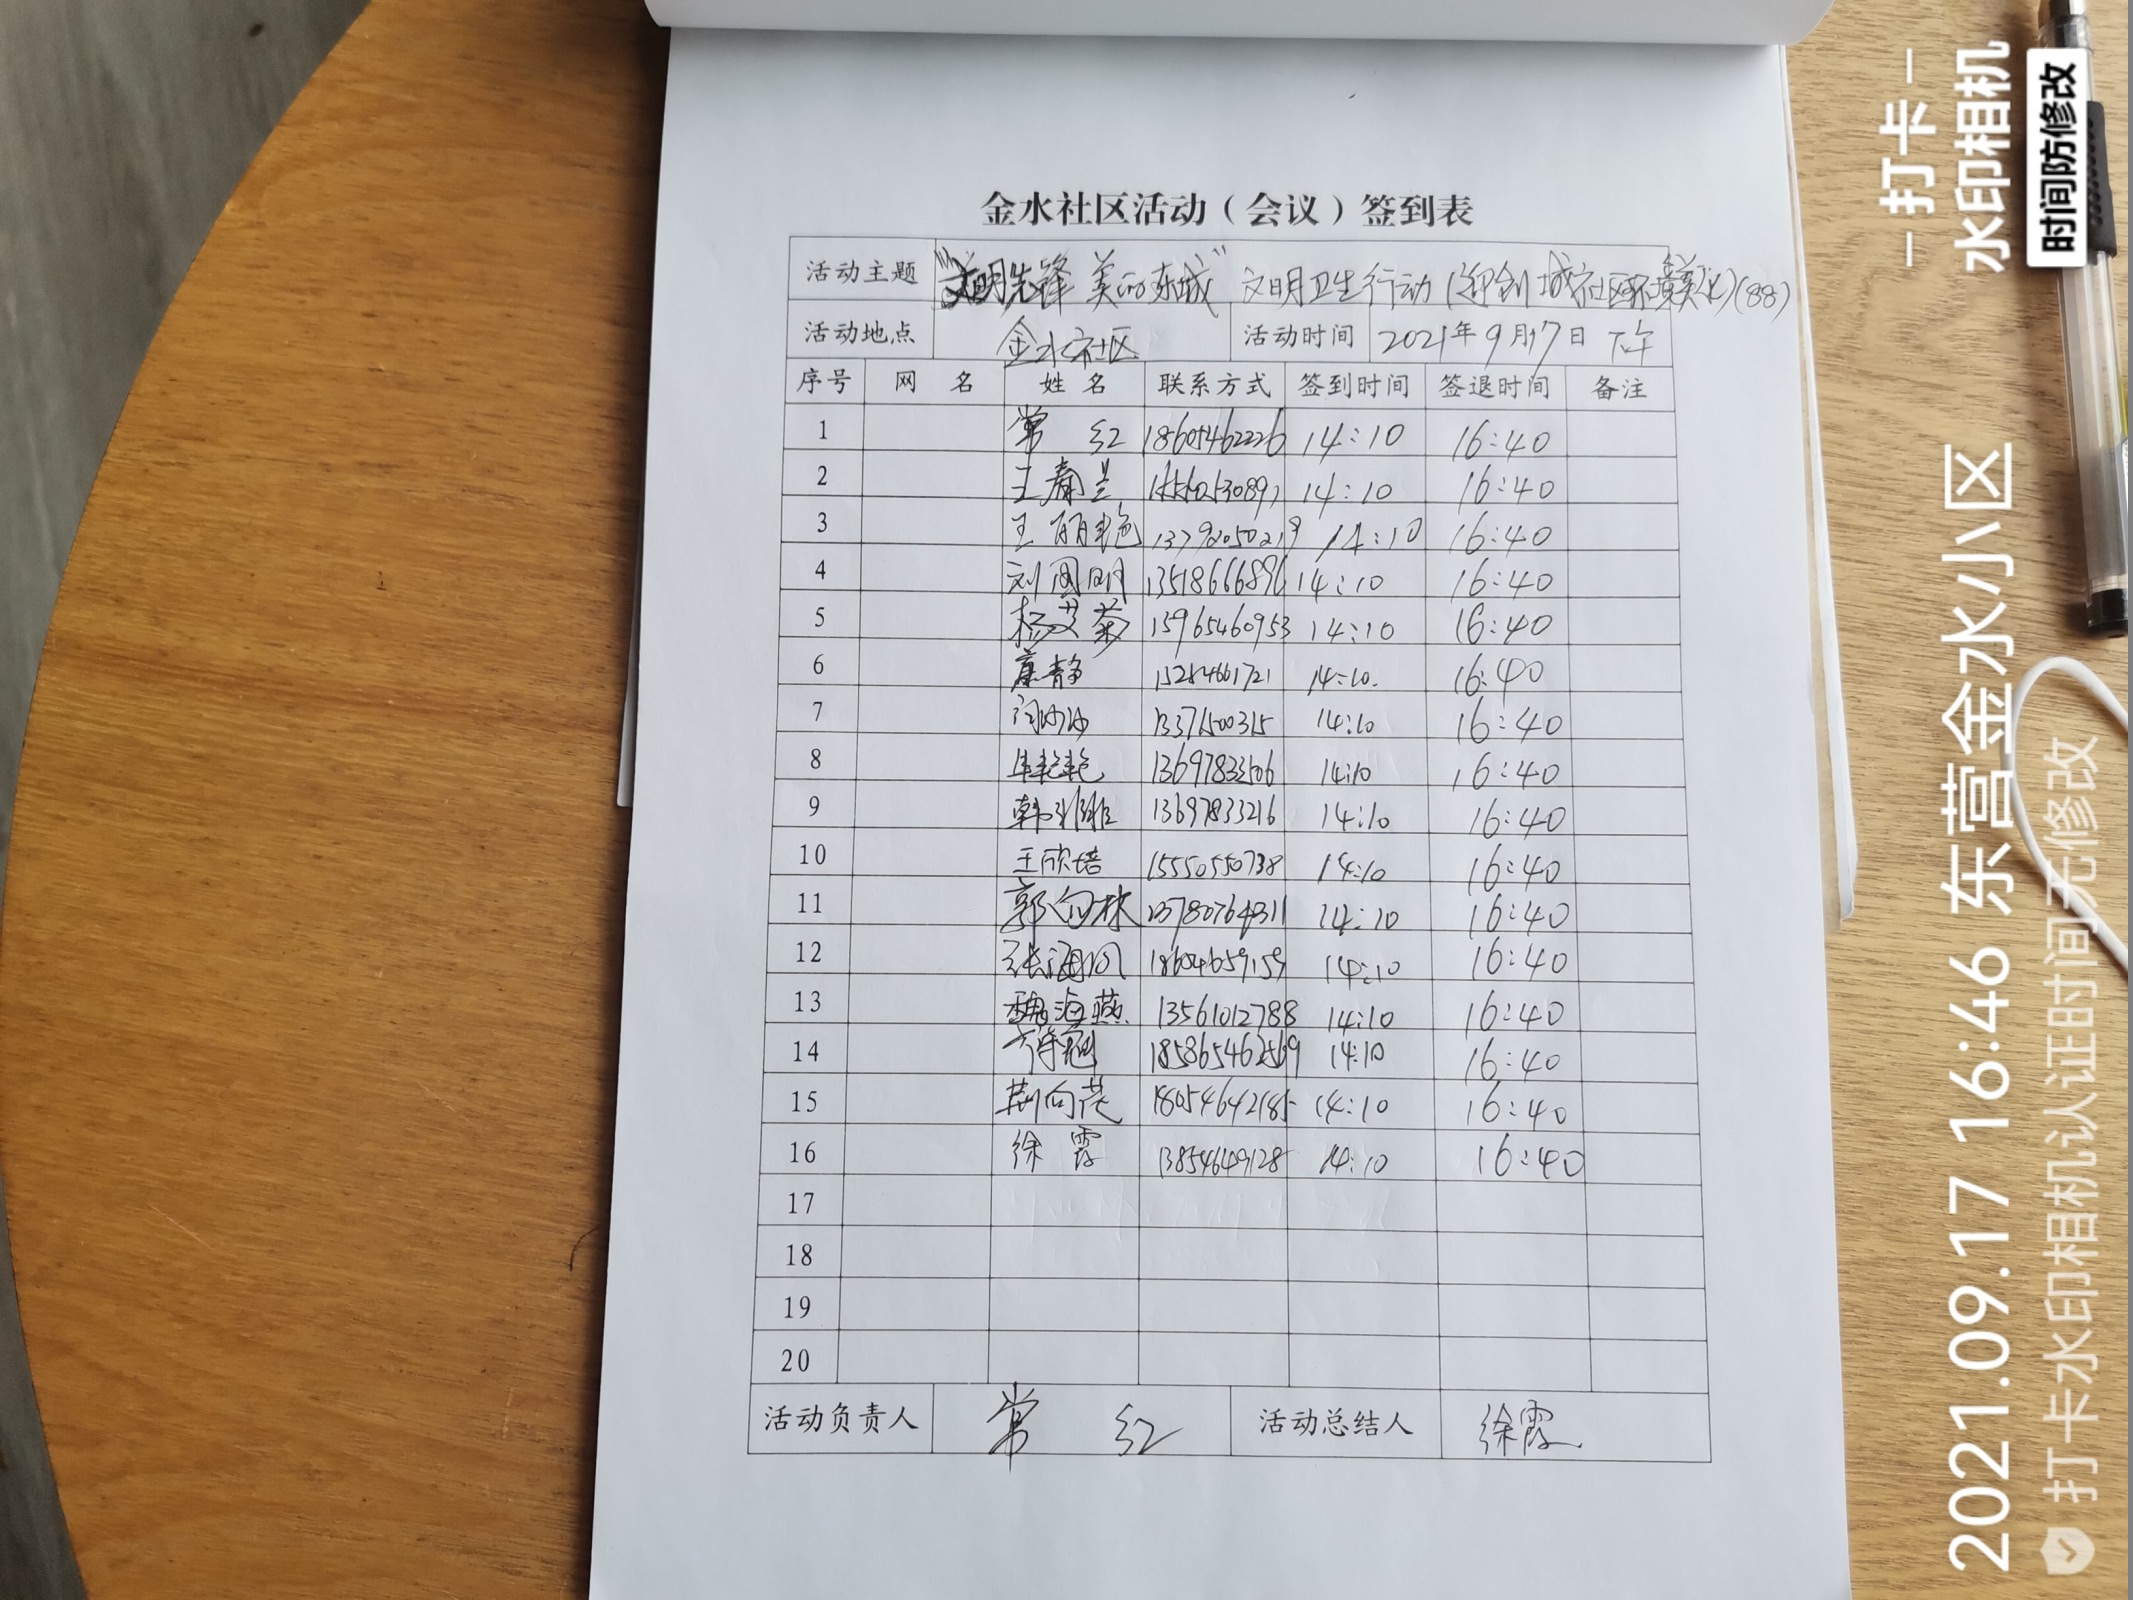 金水社区活动（会议）签到表
活动主题 "文明先锋 美丽东城" 文明卫生行动（迎创城社区环境美化）(88)
活动地点 金水社区 活动时间 2021年9月17日 下午
序号 网 名 姓 名 联系方式 签到时间 签退时间 备注
1 常 红 18605462226 14:10 16:40
2 王 兰 14:10 16:40
3 王丽艳 13792050219 14:10 16:40
4 刘国明 13518666896 14:10 16:40
5 杨艾菊 15965460953 14:10 16:40
6 康静 14:10. 16:40
7 闫沙沙 13371500315 14:10 16:40
8 艳艳 13697833506 14:10 16:40
9 韩雅雅 13697833216 14:10 16:40
10 王欣培 15550550738 14:10 16:40
11 郭 林 14:10 16:40
12 张海 14:10 16:40
13 魏海燕 13561012788 14:10 16:40
14 14:10 16:40
15 荆向花 18054642185 14:10 16:40
16 徐 霞 13854649128 14:10 16:40
17
18
19
20
活动负责人 常 红 活动总结人 徐霞
- 打卡 -
水印相机
时间防修改
2021.09.17 16:46 东营金水小区
打卡水印相机认证时间无修改